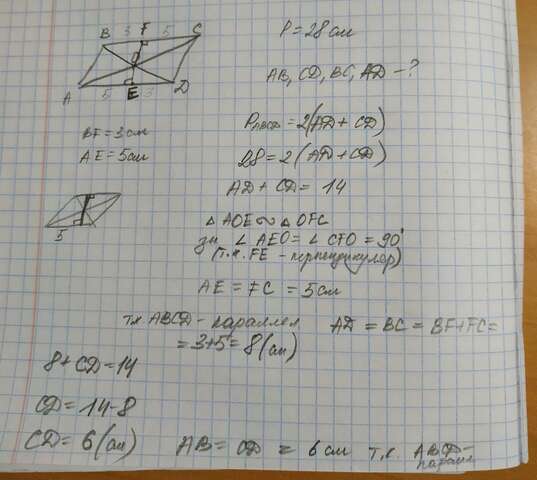 B 3 F 5 C
O
A 5 E 3 D
P = 28 см
AB, CD, BC, AD - ?
BF = 3 см
AE = 5 см
P ABCD = 2(AD + CD)
28 = 2(AD + CD)
AD + CD = 14
5
△ AOE ∾ △ OFC
∠ AEO = ∠ CFO = 90°
(т.к. FE - перпендикуляр)
AE = FC = 5 см
т.к ABCD - параллел AD = BC = BF + FC =
= 3+5 = 8 (см)
8 + CD = 14
CD = 14 - 8
CD = 6 (см)
AB = CD = 6 см т.к. ABCD -
паралл